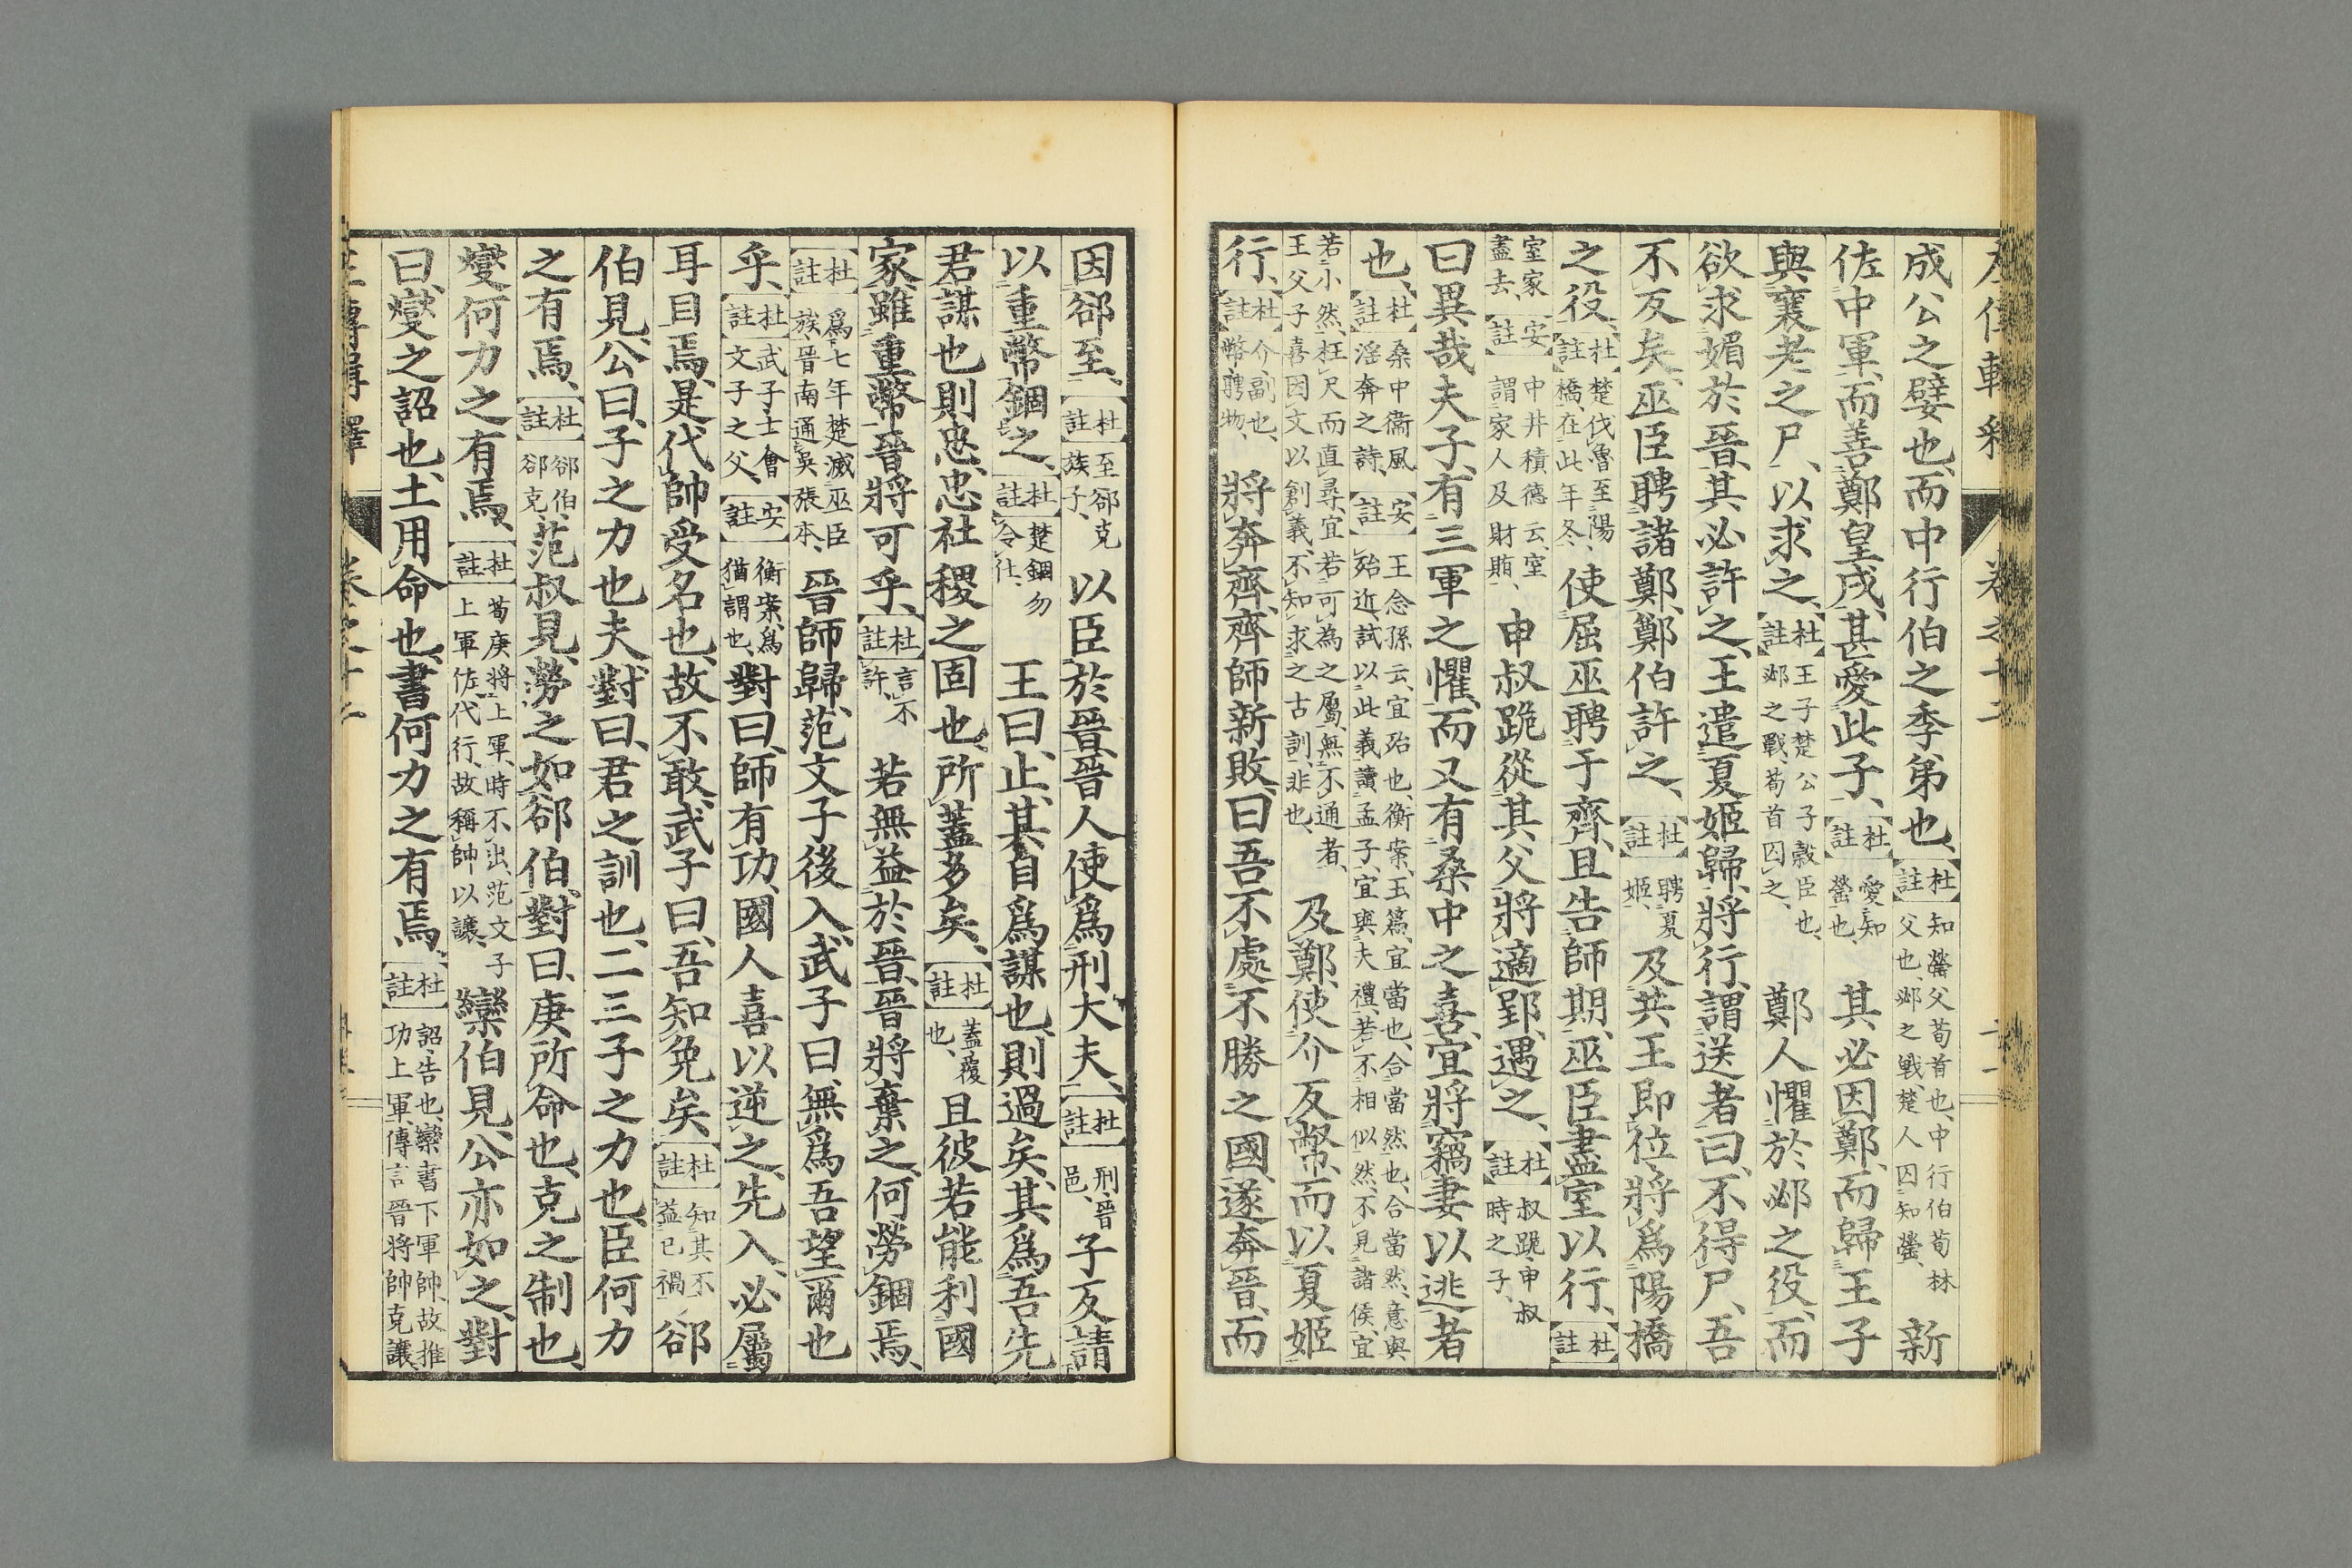 成公之嬖也、而中行伯之季弟也、【杜註】知罃父荀首也、中行伯荀林父也、邲之戰、楚人囚知罃、新
佐中軍、而善鄭皇戌、甚愛此子、【杜註】愛知罃也、其必因鄭、而歸王子
與襄老之尸、以求之、【杜註】王子楚公子穀臣也、邲之戰、荀首囚之、鄭人懼於邲之役、而
欲求媚於晉、其必許之、王遣夏姬歸、將行、謂送者曰、不得尸、吾
不反矣、巫臣聘諸鄭、鄭伯許之、【杜註】聘夏姬、及共王即位、將爲陽橋
之役、【杜註】楚伐魯至陽橋、在此年冬、使屈巫聘于齊、且告師期、巫臣盡室以行、【杜註】
室家盡去、【安註】中井積德云、室謂家人及財賄、申叔跪從其父將適郢、遇之、【杜註】叔跪、申叔時之子、
曰異哉夫子、有三軍之懼、而又有桑中之喜、宜將竊妻以逃者
也、【杜註】桑中衞風淫奔之詩、【安註】王念孫云、宜殆也、衡案、玉篇、宜當也、合當然也、合當然、意與殆近、試以此義讀孟子、宜與夫禮、若不相似然、不見諸侯、宜
若小然、枉尺而直尋、宜若可為之屬、無不通者、王父子喜因文以創義、不知求之古訓、非也、及鄭、使介反幣、而以夏姬
行、【杜註】介、副也、幣聘物、將奔齊、齊師新敗、曰吾不處不勝之國、遂奔晉、而
因郤至、【杜註】至郤克族子、以臣於晉、晉人使爲刑大夫、【杜註】刑、晉邑、子反請
以重幣錮之、【杜註】楚錮勿令仕、王曰、止、其自爲謀也、則過矣、其爲吾先
君謀也、則忠、忠社稷之固也、所蓋多矣、【杜註】蓋覆也、且彼若能利國
家、雖重幣、晉將可乎、【杜註】言不許、若無益於晉、晉將棄之、何勞錮焉、
【杜註】爲七年楚滅巫臣族、晉南通吳張本、晉師歸、范文子後入、武子曰、無爲吾望爾也
乎、【杜註】武子士會文子之父、【安註】衡案、爲猶謂也、對曰、師有功、國人喜以逆之、先入、必屬
耳目焉、是代帥受名也、故不敢、武子曰、吾知免矣、【杜註】知其不益已禍、郤
伯見、公曰、子之力也夫、對曰、君之訓也、二三子之力也、臣何力
之有焉、【杜註】郤伯、郤克、范叔見、勞之如郤伯、對曰、庚所命也、克之制也、
燮何力之有焉、【杜註】荀庚將上軍、時不出、范文子上軍佐、代行、故稱帥以讓、欒伯見、公亦如之、對
曰、燮之詔也、士用命也、書何力之有焉、【杜註】詔、告也、欒書下軍帥、故推功上軍、傳言晉將帥克讓、